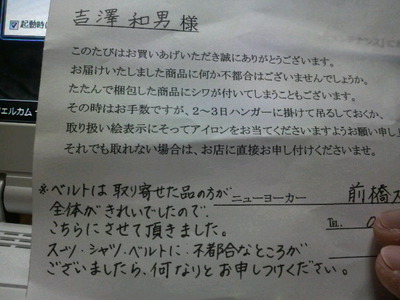 起動時に
吉澤和男様
このたびはお買いあげいただき誠にありがとうございます。
お届けいたしました商品に何か不都合はございませんでしょうか。
たたんで梱包した商品にシワが付いてしまうこともございます。
その時はお手数ですが、2～3日ハンガーに掛けて吊るしておくか、
取り扱い絵表示にそってアイロンをお当てくださいますようお願い申し
それでも取れない場合は、お店に直接お申し付けくださいませ。
※ベルトは取り寄せた品の方が
ニューヨーカー 前橋
全体がきれいでしたので、
こちらにさせて頂きました。
TEL 0
スーツ・シャツ・ベルトに不都合なところが
ございましたら、何なりとお申しつけください。